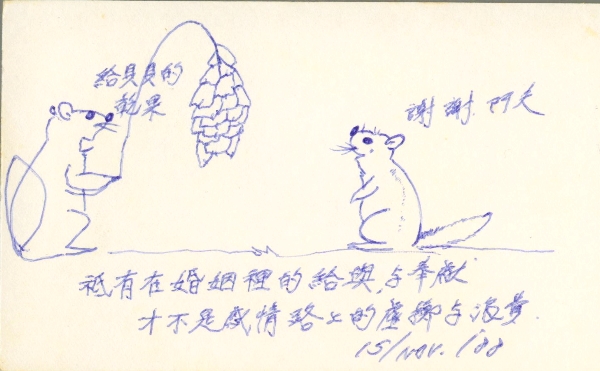 給貝貝的
乾果
謝謝.阿夫
祗有在婚姻裡的給與,与奉獻
才不是感情路上的虛擲与浪費.
15/NOV. '88